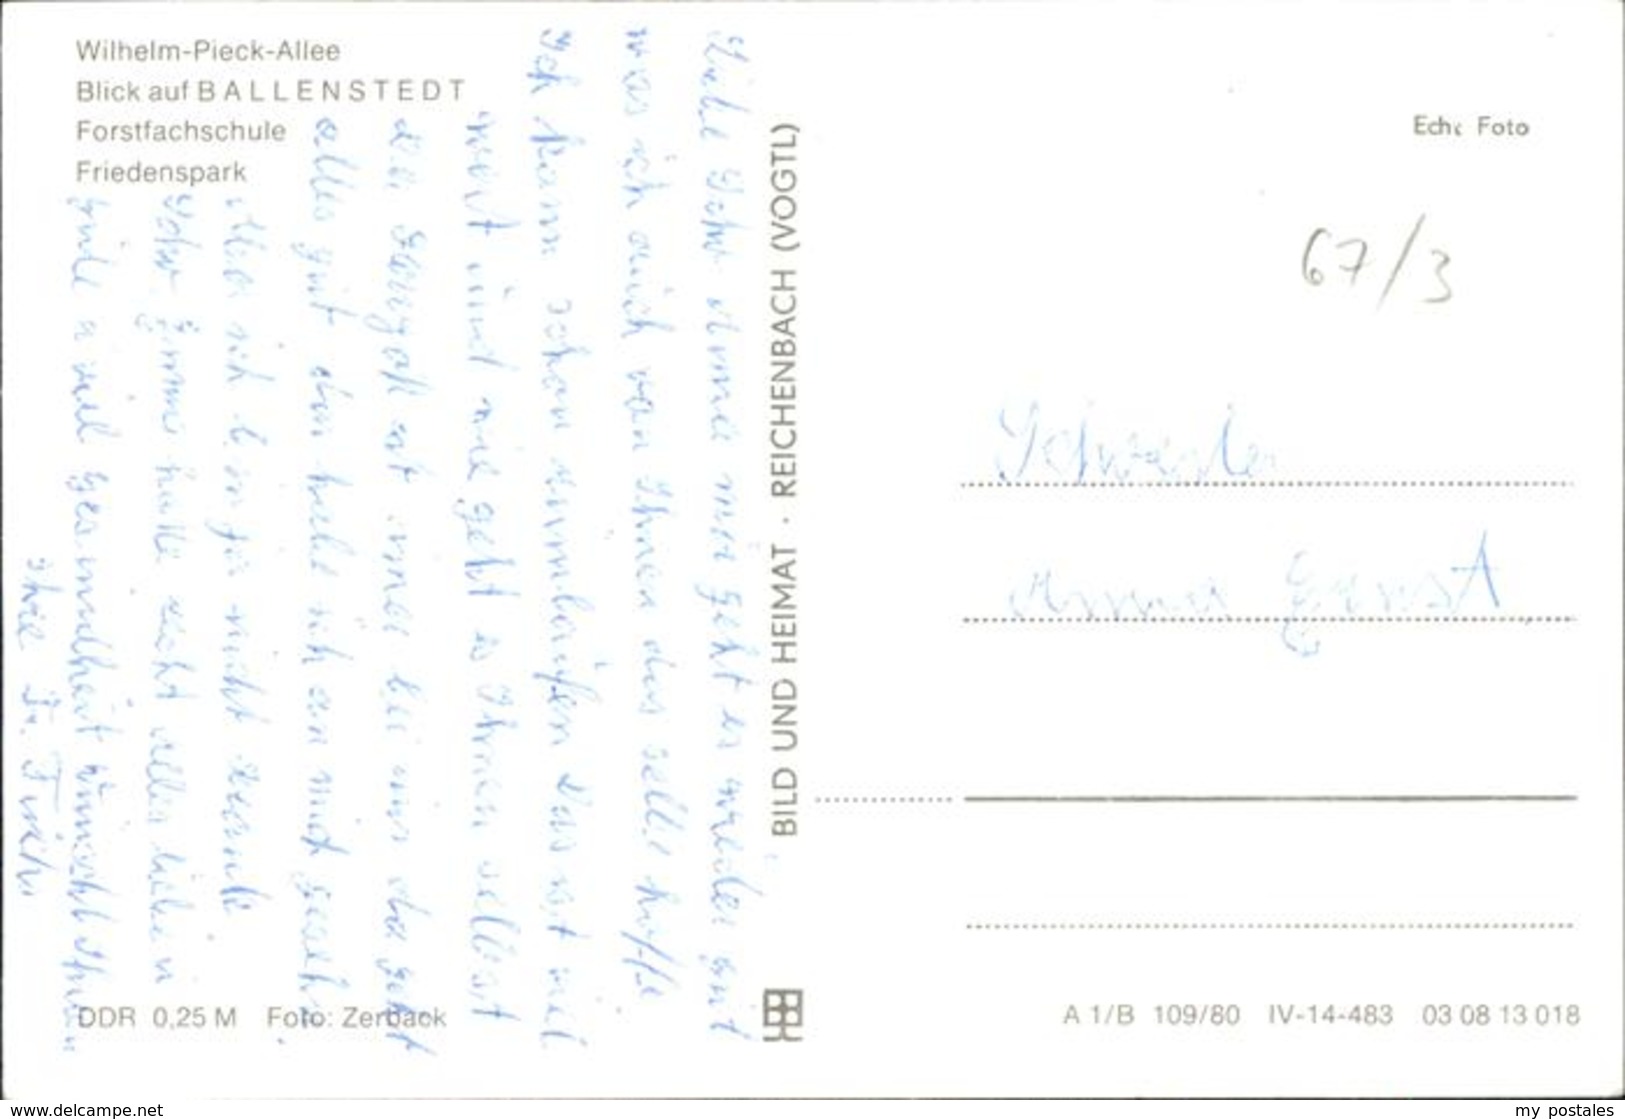 Wilhelm-Pieck-Allee
Blick auf BALLENSTEDT
Forstfachschule
Friedenspark
Liebe Schw. Anna mir geht es wieder gut
was ich auch von Ihnen das selbe hoffe
Ich kann schon rumlaufen das ist viel
wert und wie geht es Ihnen selbst
ist einer bei uns da geht
alles gut den habe ich an mich
Aber ich bin ja nicht
Schw. Emma habe recht alles liebe u
gute u viel gesundheit wünscht Ihnen
Ihre Fr. Fuchs
BILD UND HEIMAT · REICHENBACH (VOGTL)
Echt Foto
67/3
Schwester
Anna Ernst
DDR 0,25 M Foto: Zerback
A 1/B 109/80 IV-14-483 03 08 13 018
www.delcampe.net
my postales